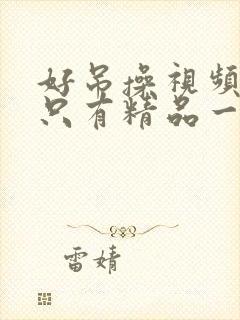 好吊操視頻
只有精品一
雷婧